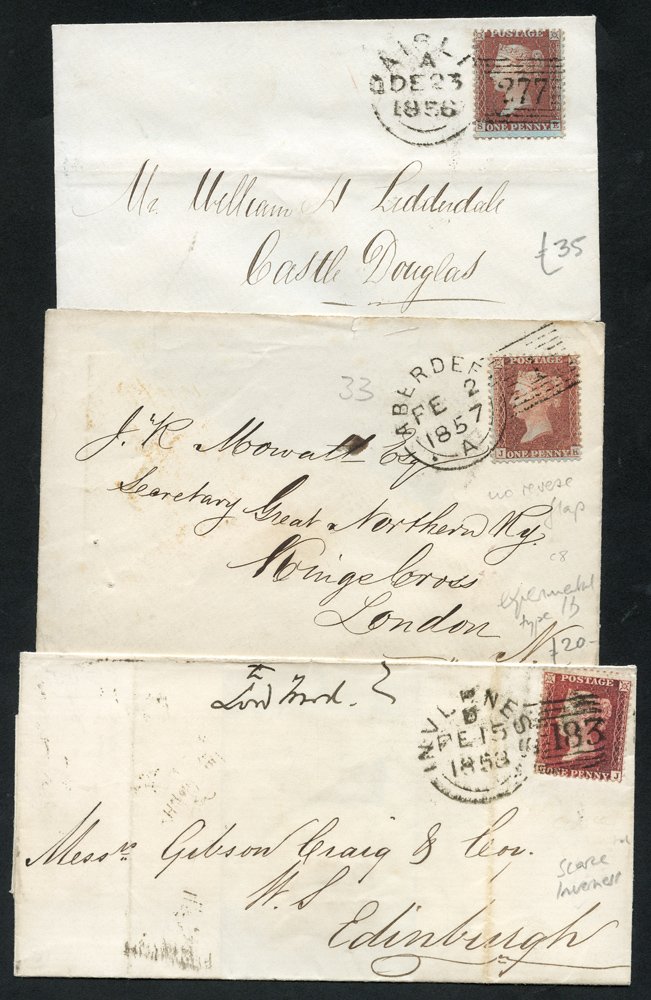 PAISL
A
DE 23
1856
POSTAGE
277
ONE PENNY
Mr. William H Lidderdale
Castle Douglas
£35
ABERDEE
FE 2
1857
A
POSTAGE
1
J ONE PENNY
33
J. R Mowatt Esq
Secretary Great Northern Ry.
Kings Cross
London
N.
no reverse
flap
C8
experimental
type 1b
£20-
Lord
INVERNESS
B
FE 15
1858
POSTAGE
183
ONE PENNY J
Messrs Gibson Craig & Coy.
W.S
Edinburgh
Scarce
Inverness